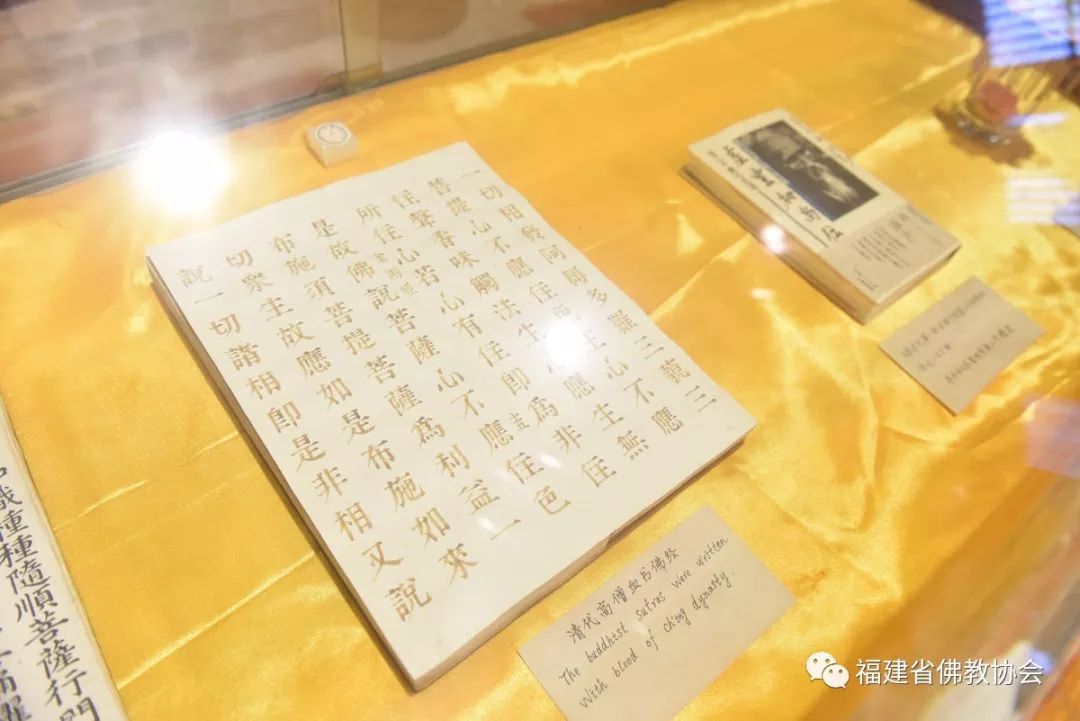 一切相發阿耨多羅三藐三
菩提心不應住色生心不應
住聲香味觸法生心應生無
所住心若心有住即為非住
是故佛說菩薩心不應住色
布施須菩提菩薩為利益一
切眾生故應如是布施如來
說一切諸相即是非相又說
種種隨順菩薩行門
虛雲和尚
清代高僧血书佛经
The buddhist sutras were written
with blood of ch'ing dynasty.
福建省佛教协会